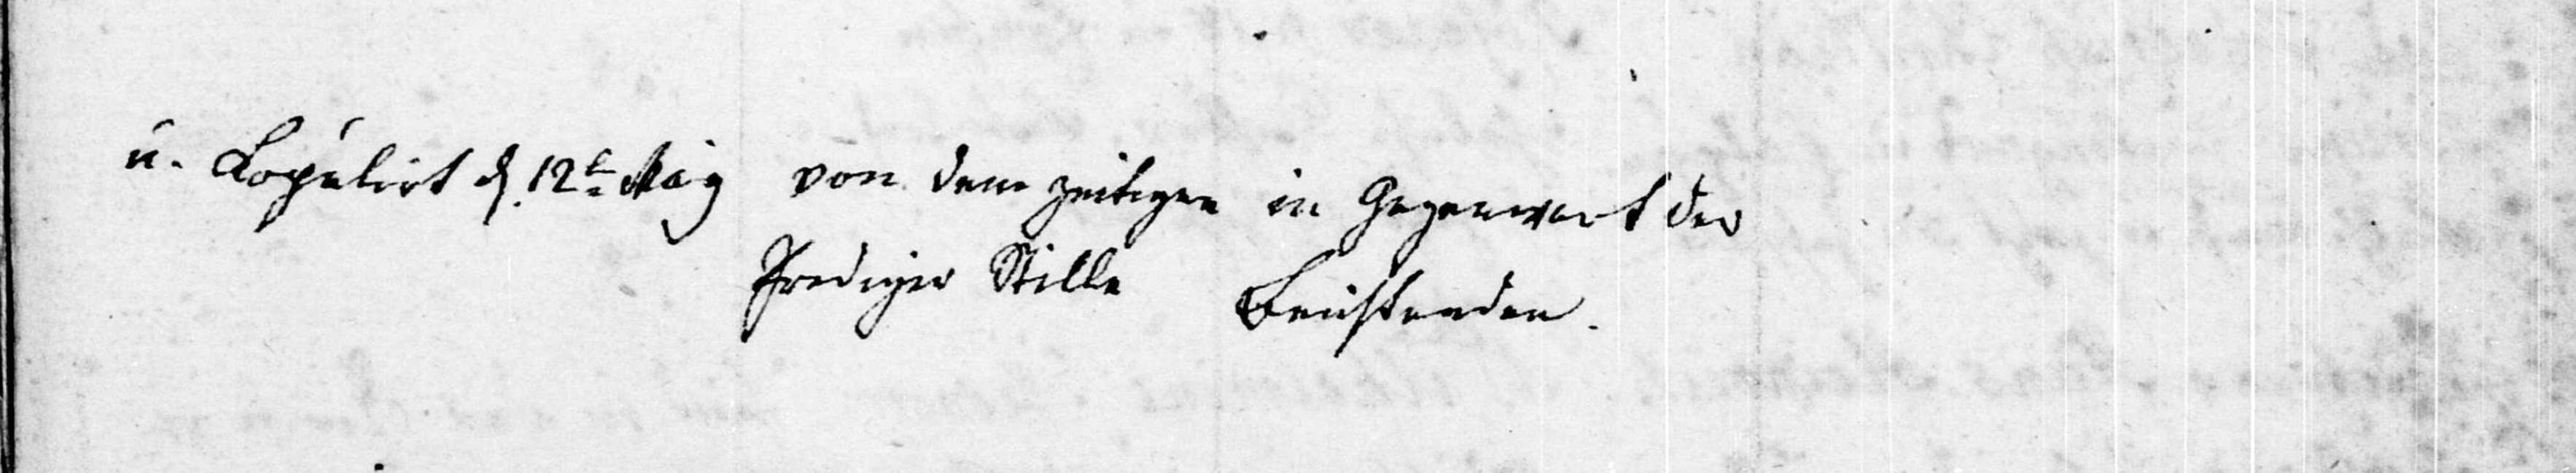 u. Kopulirt d. 12t. May von dem zeitigen in Gegenwart der
Prediger Stille Beistenden.